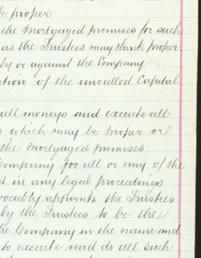 proper
the mortgaged premises for such
as the Trustees may think proper
by or against the Company
ation of the uncalled Capital
all moneys and execute all
s which may be proper or
the mortgaged premises.
Company for all or any of the
t in any legal proceedings
vocably appoints the Trustees
by the Trustees to be the
the Company in the name and
to execute and do all such